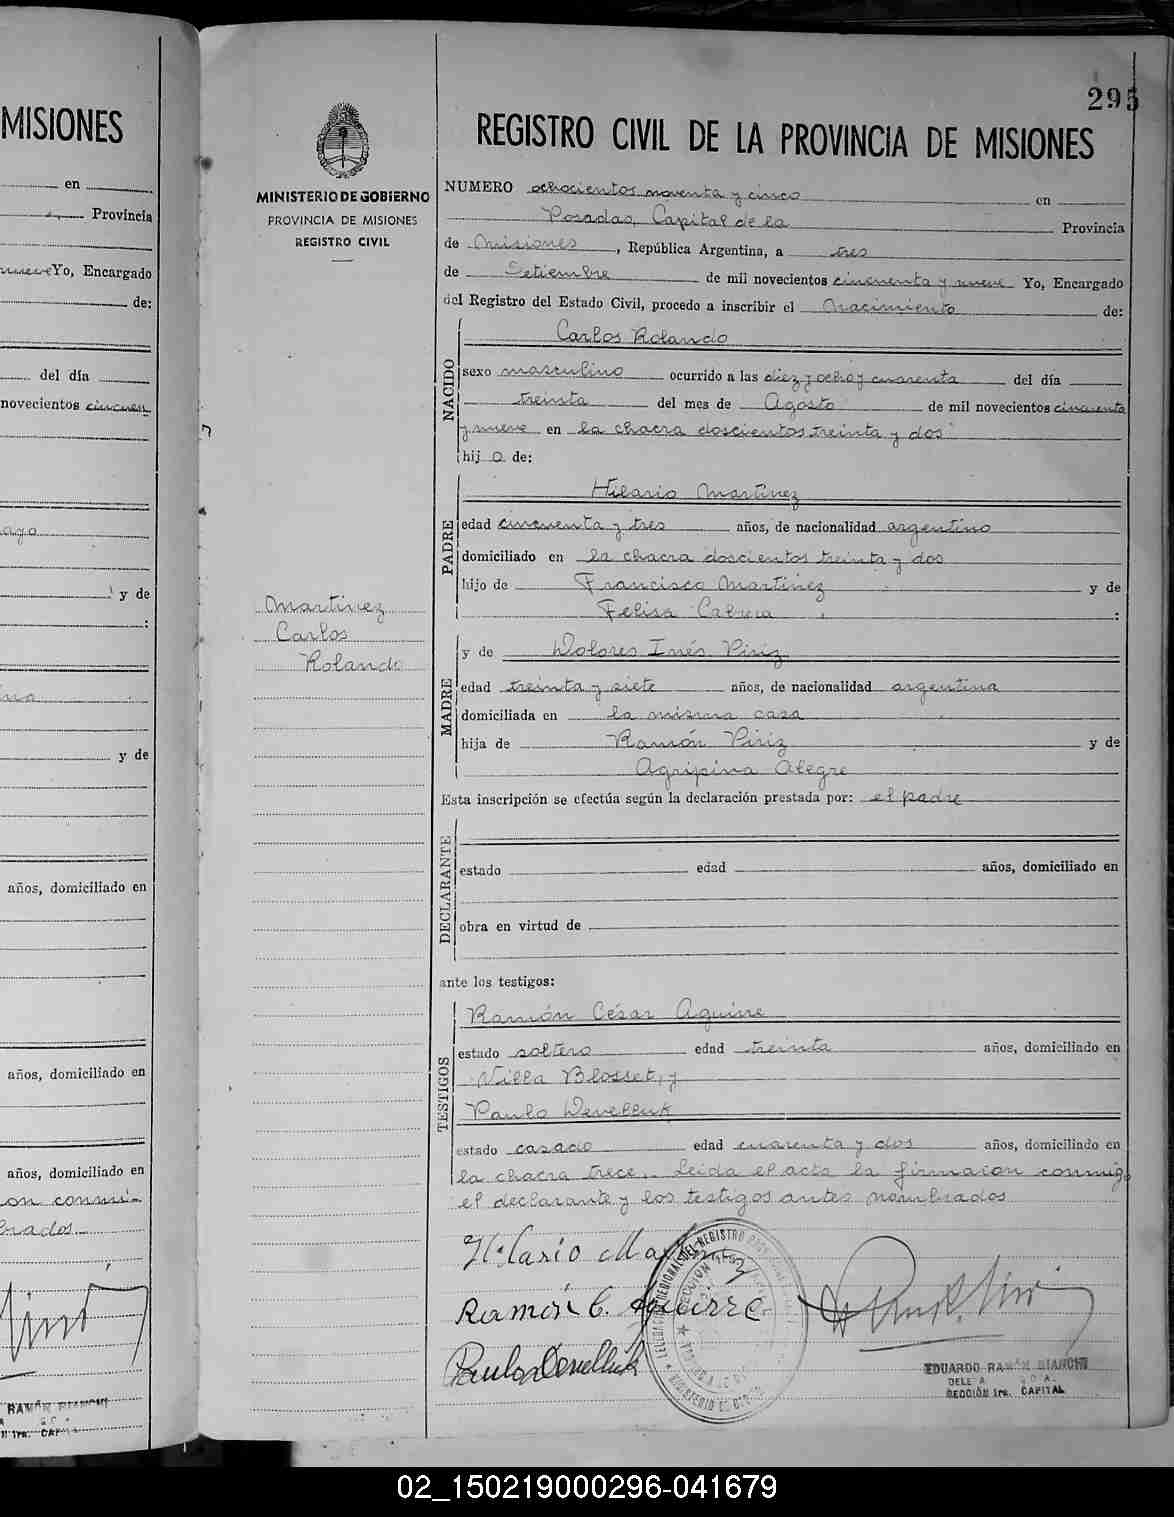 MISIONES
en
Provincia
nueve Yo, Encargado
de:
del día
novecientos cincuen
y de
:
y de
años, domiciliado en
años, domiciliado en
años, domiciliado en
brados.
RAMÓN BIANCHI
295
REGISTRO CIVIL DE LA PROVINCIA DE MISIONES
MINISTERIO DE GOBIERNO
PROVINCIA DE MISIONES
REGISTRO CIVIL
Martinez
Carlos
Rolando
NUMERO ochocientos noventa y cinco en
Posadas, Capital de la Provincia
de Misiones, República Argentina, a tres
de Setiembre de mil novecientos cincuenta y nueve Yo, Encargado
del Registro del Estado Civil, procedo a inscribir el Nacimiento de:
NACIDO
Carlos Rolando
sexo masculino ocurrido a las diez y ocho y cuarenta del día
treinta del mes de Agosto de mil novecientos cincuenta
y nueve en la chacra doscientos treinta y dos
hij o de:
PADRE
Hilario Martinez
edad cincuenta y tres años, de nacionalidad argentino
domiciliado en la chacra doscientos treinta y dos
hijo de Francisco Martinez y de
Felisa Cabrera :
MADRE
y de Dolores Inés Piriz
edad treinta y siete años, de nacionalidad argentina
domiciliada en la misma casa
hija de Ramón Piriz y de
Agripina Alegre
Esta inscripción se efectúa según la declaración prestada por: el padre
DECLARANTE
estado edad años, domiciliado en
obra en virtud de
ante los testigos:
TESTIGOS
Ramón César Aguirre
estado soltero edad treinta años, domiciliado en
Villa Blosset, y
Paulo Develluk
estado casado edad cuarenta y dos años, domiciliado en
la chacra trece. Leida el acta la firmaron conmigo
el declarante y los testigos antes nombrados
Hilario Martinez
Ramón C. Aguirre
Paulo Develluk
EDUARDO RAMÓN BIANCHI
SECCIÓN 1ra. CAPITAL
02_150219000296-041679